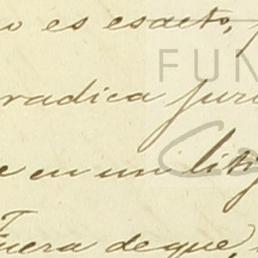 o es esacto,
FUN
radica juri
e en un litig
Fuera de que,